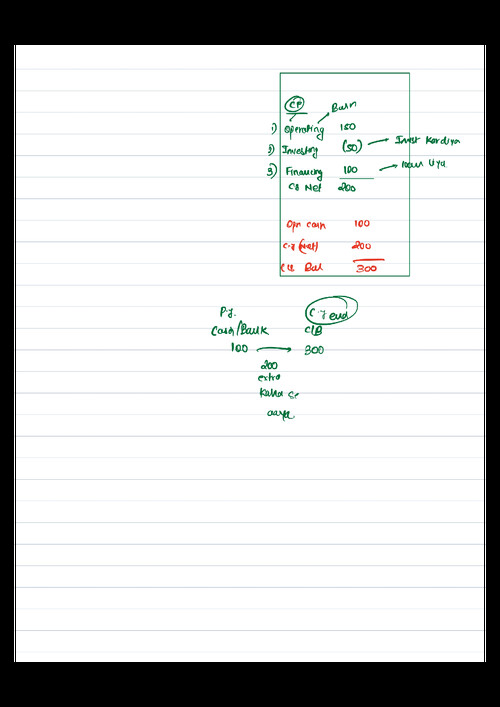 CF Busn
1) Operating 150
2) Investing (50) → Invst Kardiya
3) Financing 100 → loan liya
CF Net 200
Opn cash 100
C.y (Net) 200
Cls Bal 300
P.y. C.y end
Cash/Bank C/B
100 → 300
200
extra
Kaha se
aaya